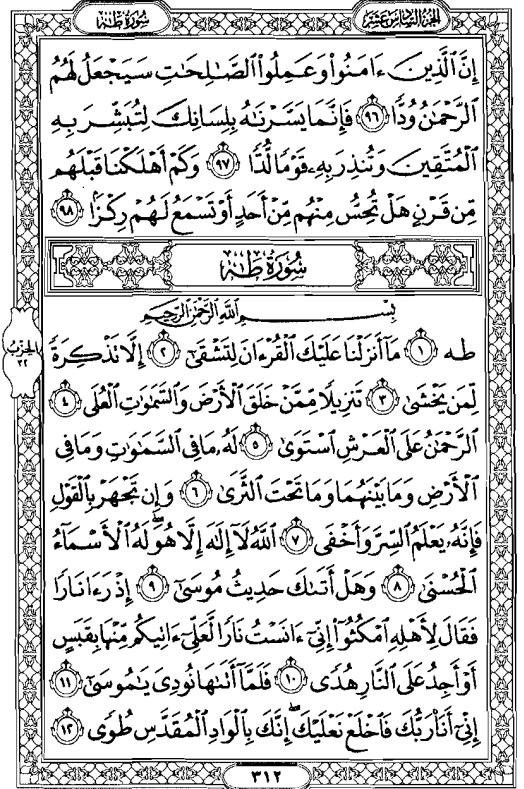 سُورَةُ طه
الجُزْءُ السَّادِسَ عَشَرَ
إِنَّ ٱلَّذِينَ ءَامَنُوا۟ وَعَمِلُوا۟ ٱلصَّـٰلِحَـٰتِ سَيَجْعَلُ لَهُمُ
ٱلرَّحْمَـٰنُ وُدًّا ٩٦ فَإِنَّمَا يَسَّرْنَـٰهُ بِلِسَانِكَ لِتُبَشِّرَ بِهِ
ٱلْمُتَّقِينَ وَتُنذِرَ بِهِۦ قَوْمًا لُّدًّا ٩٧ وَكَمْ أَهْلَكْنَا قَبْلَهُم
مِّن قَرْنٍ هَلْ تُحِسُّ مِنْهُم مِّنْ أَحَدٍ أَوْ تَسْمَعُ لَهُمْ رِكْزًۢا ٩٨
سُورَةُ طه
بِسْمِ ٱللَّهِ ٱلرَّحْمَـٰنِ ٱلرَّحِيمِ
طه ١ مَآ أَنزَلْنَا عَلَيْكَ ٱلْقُرْءَانَ لِتَشْقَىٰٓ ٢ إِلَّا تَذْكِرَةً
لِّمَن يَخْشَىٰ ٣ تَنزِيلًا مِّمَّنْ خَلَقَ ٱلْأَرْضَ وَٱلسَّمَـٰوَٰتِ ٱلْعُلَى ٤
ٱلرَّحْمَـٰنُ عَلَى ٱلْعَرْشِ ٱسْتَوَىٰ ٥ لَهُۥ مَا فِى ٱلسَّمَـٰوَٰتِ وَمَا فِى
ٱلْأَرْضِ وَمَا بَيْنَهُمَا وَمَا تَحْتَ ٱلثَّرَىٰ ٦ وَإِن تَجْهَرْ بِٱلْقَوْلِ
فَإِنَّهُۥ يَعْلَمُ ٱلسِّرَّ وَأَخْفَى ٧ ٱللَّهُ لَآ إِلَـٰهَ إِلَّا هُوَۖ لَهُ ٱلْأَسْمَآءُ
ٱلْحُسْنَىٰ ٨ وَهَلْ أَتَىٰكَ حَدِيثُ مُوسَىٰٓ ٩ إِذْ رَءَا نَارًا
فَقَالَ لِأَهْلِهِ ٱمْكُثُوٓا۟ إِنِّىٓ ءَانَسْتُ نَارًا لَّعَلِّىٓ ءَاتِيكُم مِّنْهَا بِقَبَسٍ
أَوْ أَجِدُ عَلَى ٱلنَّارِ هُدًى ١٠ فَلَمَّآ أَتَىٰهَا نُودِىَ يَـٰمُوسَىٰٓ ١١
إِنِّىٓ أَنَا۠ رَبُّكَ فَٱخْلَعْ نَعْلَيْكَۖ إِنَّكَ بِٱلْوَادِ ٱلْمُقَدَّسِ طُوًى ١٢
الحِزْبُ
٣٢
٣١٢